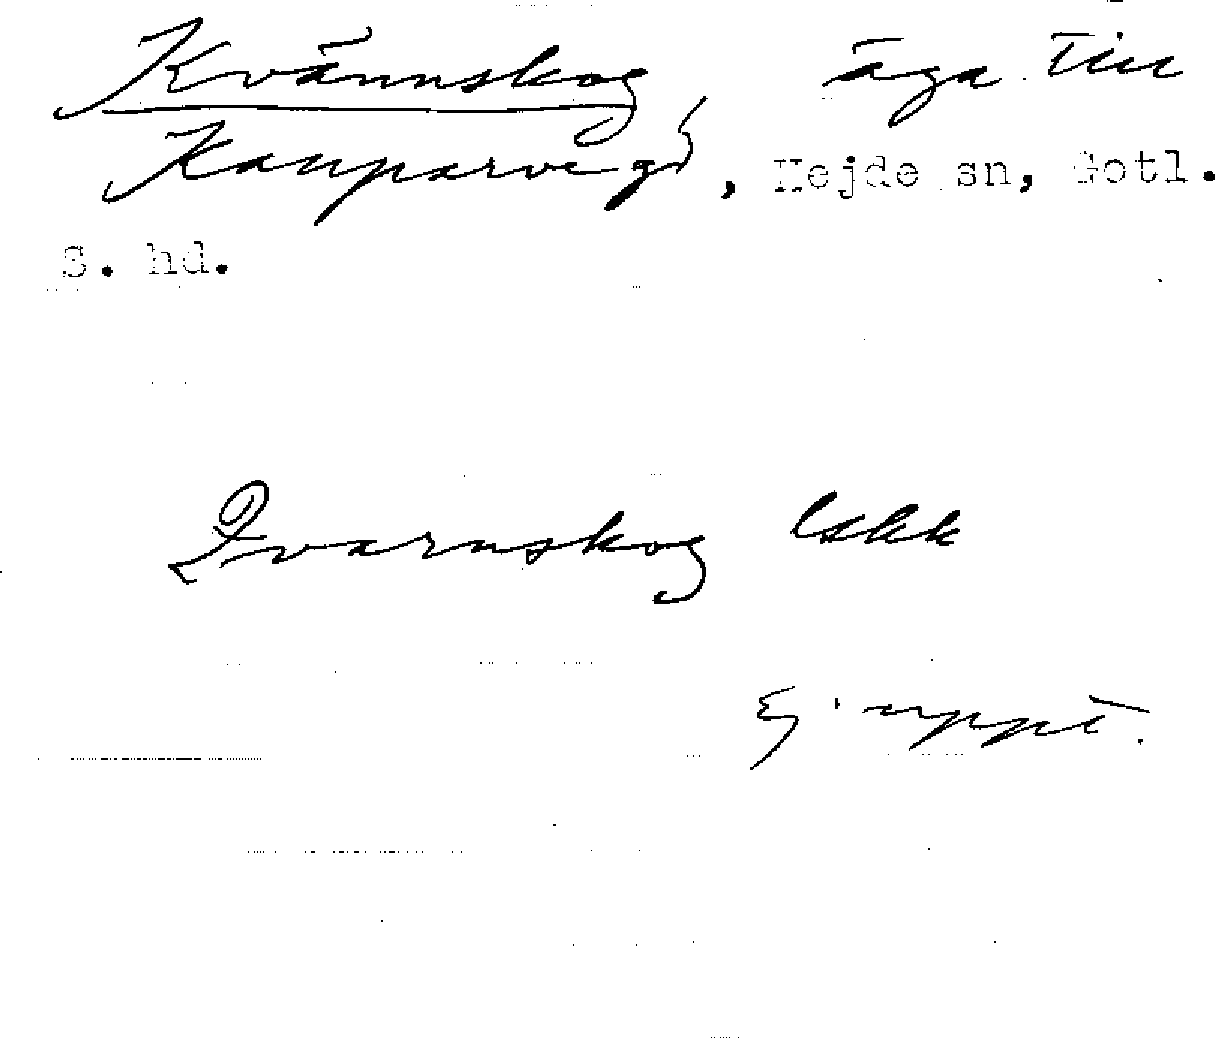 Kvännskog, äga till
Kauparve gd, Hejde sn, Gotl.
S. hd.
Qvarnskog Eskk
Ej uppt.